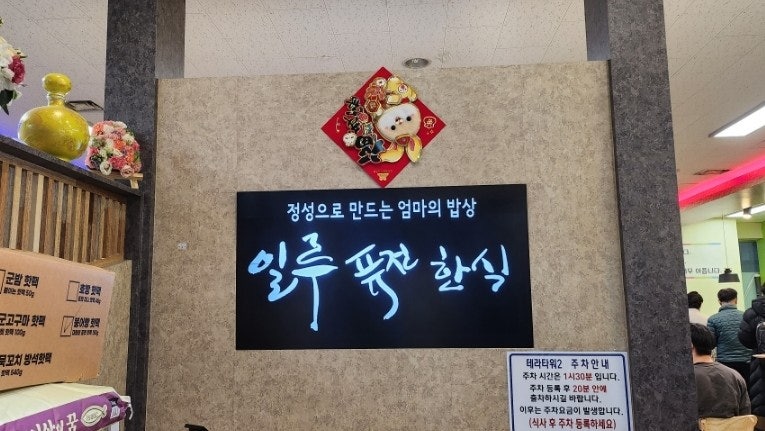 정성으로 만드는 엄마의 밥상
일루 퓨전 한식
군밤 핫팩
호빵 핫팩
군고구마 핫팩
붕어빵 핫팩
묵꼬치 방석핫팩
테라타워2 주차안내
주차 시간은 1시30분 입니다.
주차 등록 후 20분 안에
출차하시길 바랍니다.
이후는 주차요금이 발생합니다.
(식사 후 주차 등록하세요)